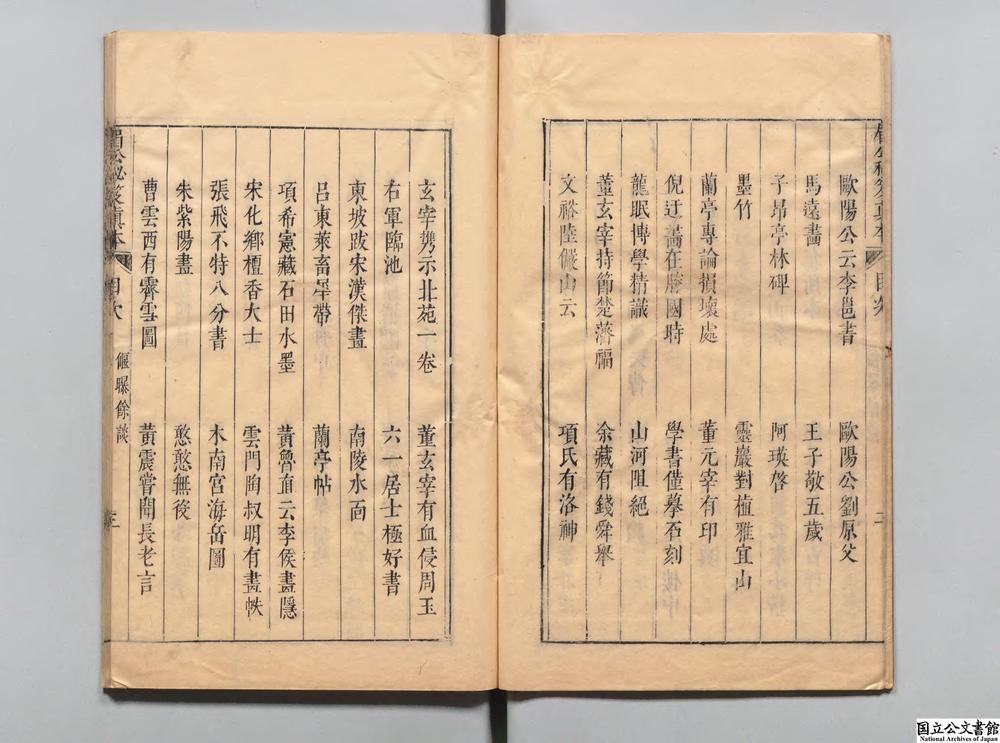 歐陽公云李邕書 歐陽公劉原父
馬遠畵 王子敬五歲
子昂亭林碑 阿瑛啓
墨竹 靈巖對植雅宜山
蘭亭專論損壞處 董元宰有印
倪迂畵在勝國時 學書僅摹石刻
龍眠博學精識 山河阻絕
董玄宰持節楚藩福 余藏有錢舜舉
文裕陸儼山云 項氏有洛神
眉公秘笈真本 目次 二
玄宰携示北苑一卷 董玄宰有血侵周玉
右軍臨池 六一居士極好書
東坡跋宋漢傑畫 南陵水面
呂東萊畜犀帶 蘭亭帖
項希憲藏石田水墨 黃魯直云李侯畫隱
宋化鄉檀香大士 雲門陶叔明有畫帙
張飛不特八分書 木南宮海岳圖
朱紫陽畫 憨憨無後
曹雲西有霽雲圖 黃震嘗聞長老言
眉公秘笈眞本 目次 偃曝餘談 三
国立公文書館
National Archives of Japan